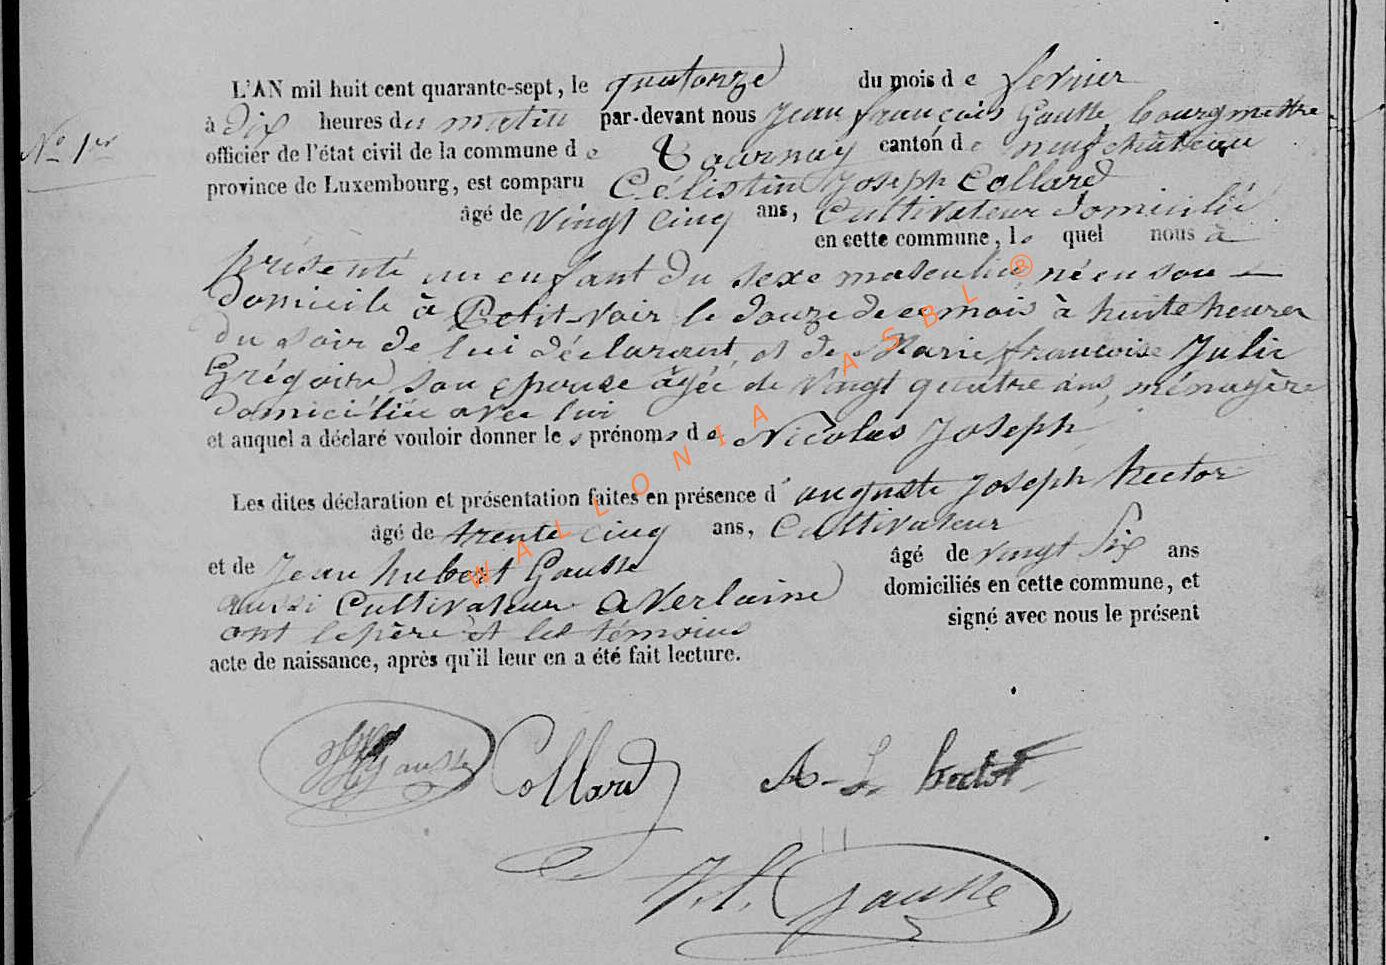 L'AN mil huit cent quarante-sept, le quatorze du mois de fevrier
à dix heures du matin par-devant nous Jean françois Gausse bourgmestre
N° 1er
officier de l'état civil de la commune de Tournay canton de neufchateau
province de Luxembourg, est comparu Célestin Joseph Collard
âgé de vingt cinq ans, Cultivateur domicilié
en cette commune, le quel nous à
présenté un enfant du sexe masculin, né en son
domicile à Petit-Voir le douze de ce mois à huite heures
du soir de lui déclarant, et de Marie françoise Julie
Grégoire son epouse âgée de vingt quatre ans, ménagère
domiciliée avec lui
et auquel a déclaré vouloir donner les prénoms de Nicolas Joseph
Les dites déclaration et présentation faites en présence d'auguste Joseph hector
âgé de trente cinq ans, Cultivateur
et de Jean hubert Gausse âgé de vingt six ans
aussi Cultivateur a Verlaine domiciliés en cette commune, et
ont le père et les témoins signé avec nous le présent
acte de naissance, après qu'il leur en a été fait lecture.
Gausse Collard A-J. hector
J.f. Gausse
WALLONIA ASBL ®